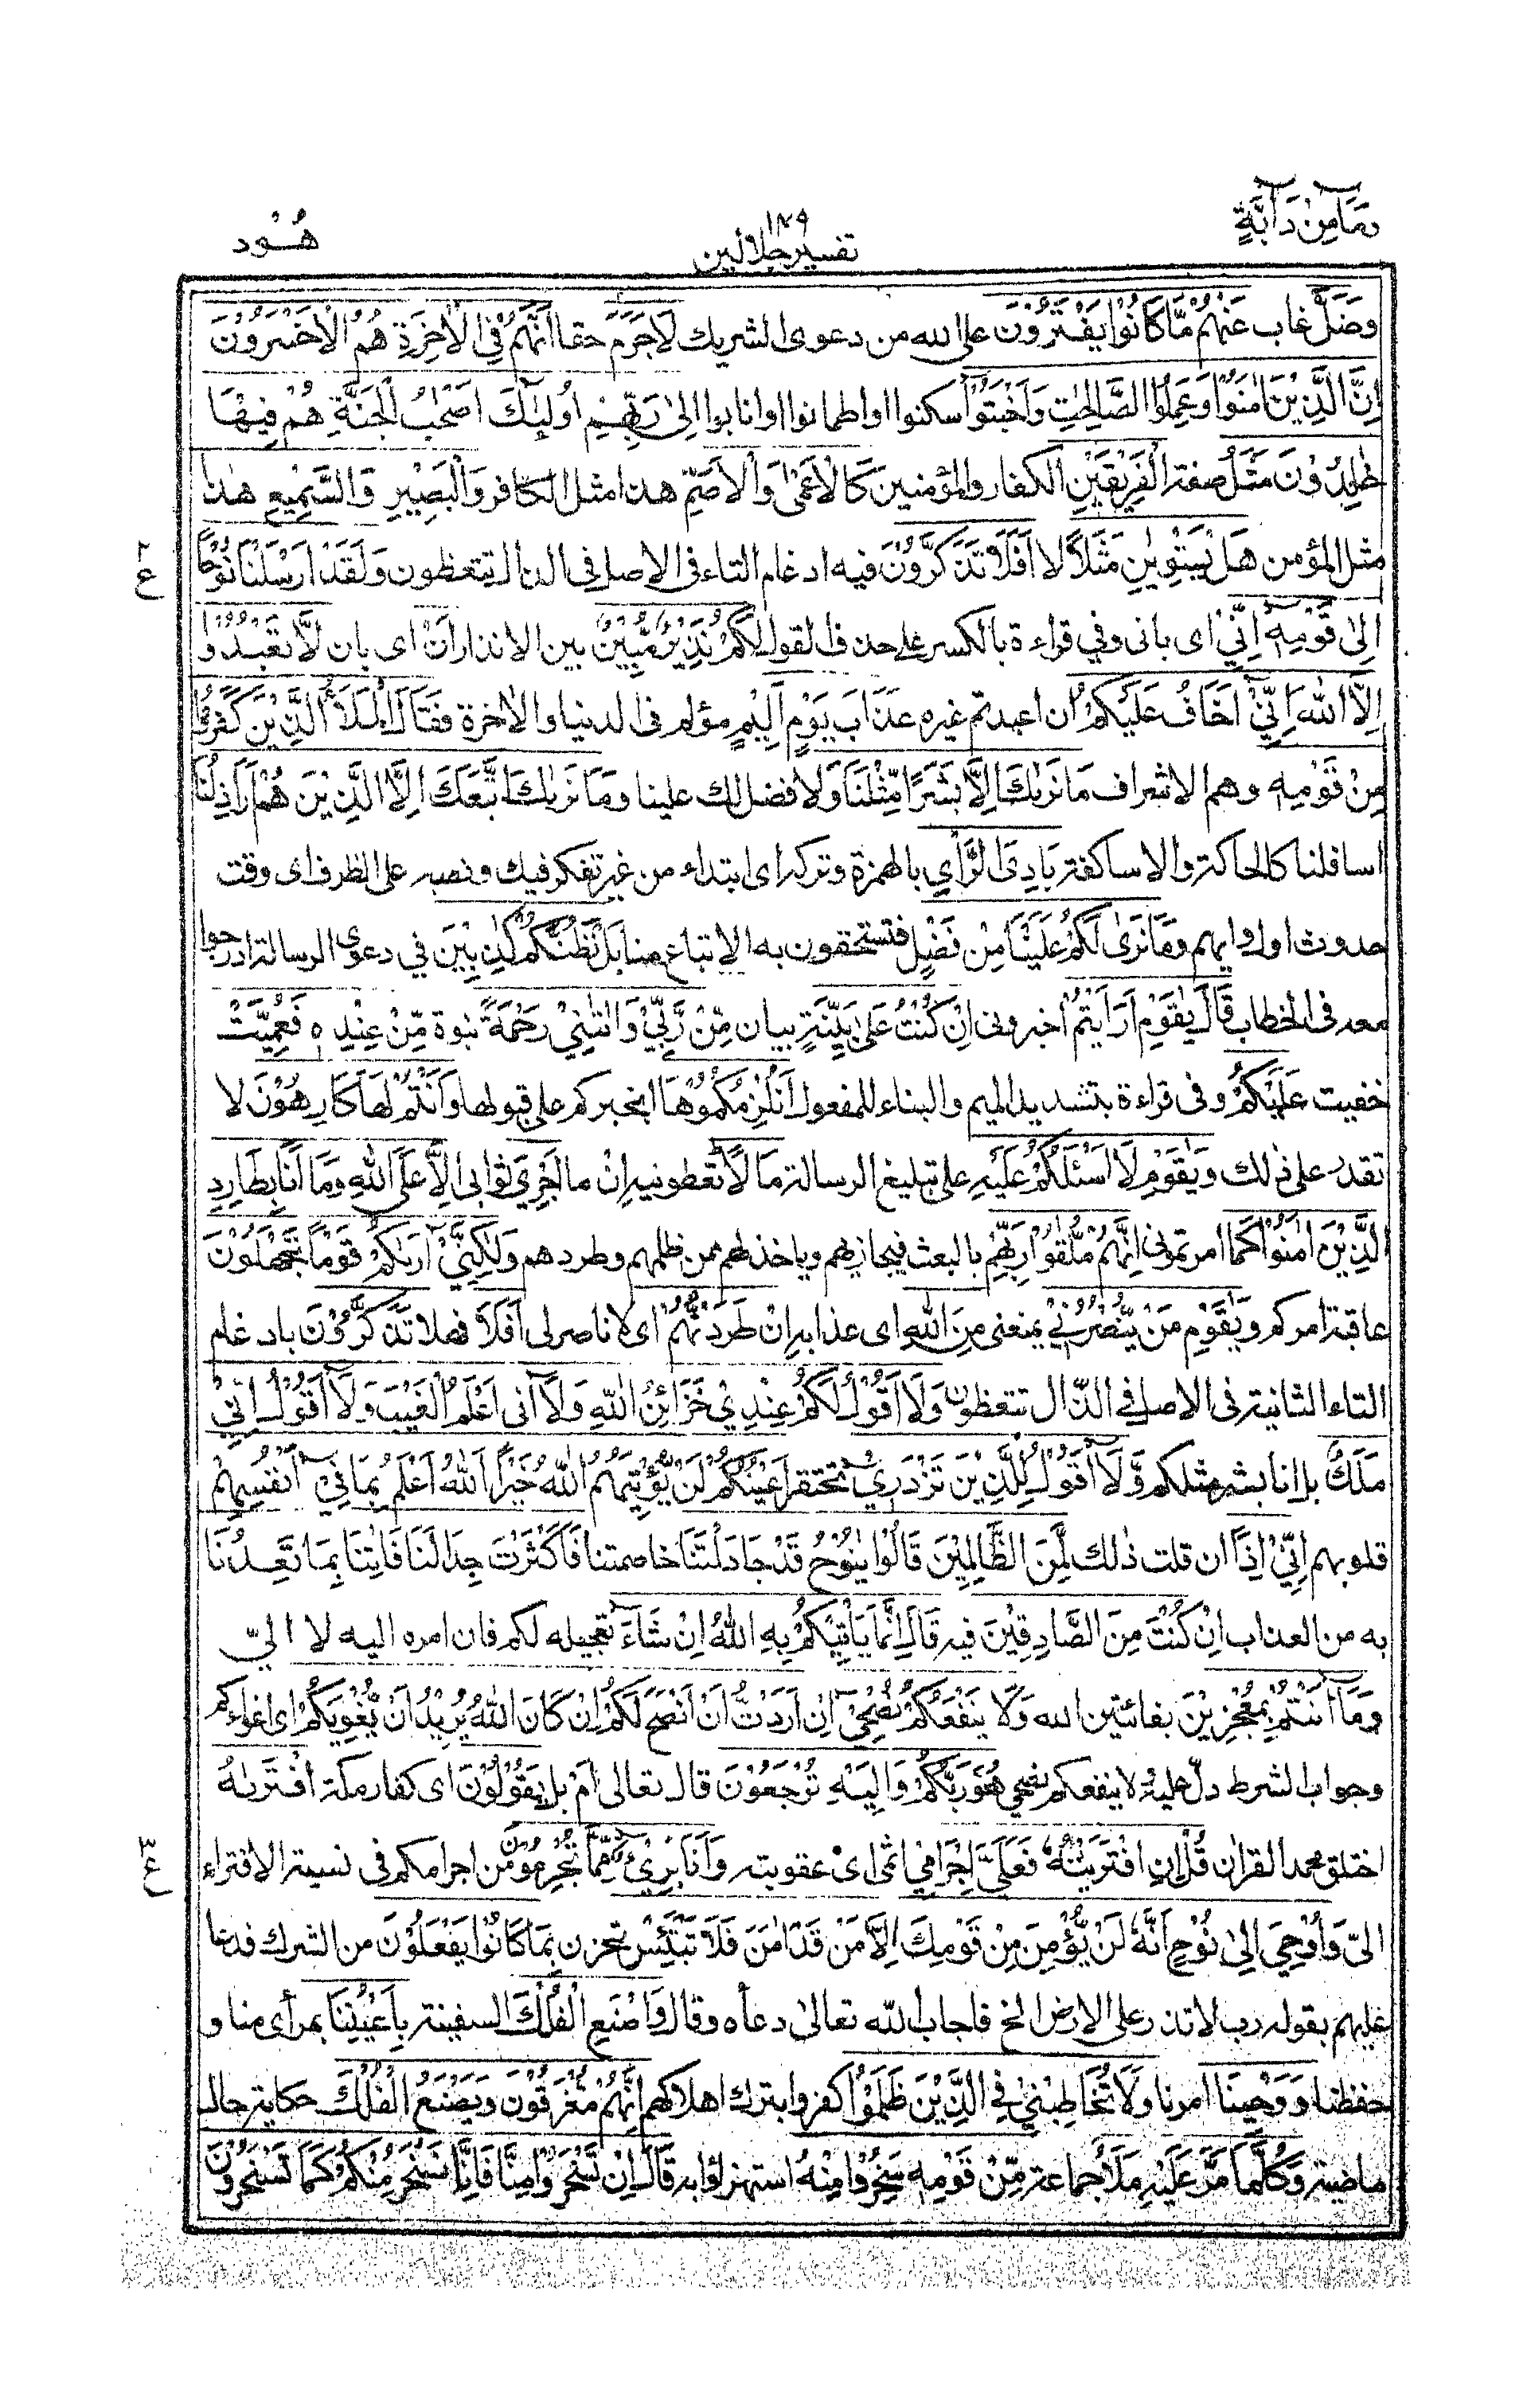 ومَا مِنْ دَآبَّةٍ
١٨٩
تفسير جلالين
هُــود
وَضَلَّ غاب عَنْهُمْ مَّا كَانُوْا يَفْتَرُوْنَ على الله من دعوى الشريك لَاجَرَمَ حقا اَنَّهُمْ فِي الْاٰخِرَةِ هُمُ الْاَخْسَرُوْنَ
اِنَّ الَّذِيْنَ اٰمَنُوْا وَعَمِلُوا الصَّالِحٰتِ وَاَخْبَتُوْٓا سكنوا او اطمانوا او انابوا اِلٰى رَبِّهِمْ اُولٰٓئِكَ اَصْحٰبُ الْجَنَّةِ هُمْ فِيْهَا
خٰلِدُوْنَ مَثَلُ صفة الْفَرِيْقَيْنِ الكفار والمؤمنين كَالْاَعْمٰى وَالْاَصَمِّ هذا مثل الكافر وَالْبَصِيْرِ وَالسَّمِيْعِ هذا
مثل المؤمن هَلْ يَسْتَوِيٰنِ مَثَلًا لا اَفَلَا تَذَكَّرُوْنَ فيه ادغام التاء فى الاصل فى الذال يتعظون وَلَقَدْ اَرْسَلْنَا نُوْحًا
ع
اِلٰى قَوْمِهٖٓ اِنِّيْ اى بانى وفي قراءة بالكسر على حذف القول لَكُمْ نَذِيْرٌ مُّبِيْنٌ بين الانذار اَنْ اى بان لَّا تَعْبُدُوْٓا
اِلَّا اللّٰهَ اِنِّيْٓ اَخَافُ عَلَيْكُمْ ان اعبدتم غيره عَذَابَ يَوْمٍ اَلِيْمٍ مؤلم فى الدنيا والاٰخرة فَقَالَ الْمَلَاُ الَّذِيْنَ كَفَرُوْا
مِنْ قَوْمِهٖ وهم الاشراف مَا نَرٰىكَ اِلَّا بَشَرًا مِّثْلَنَا وَلا فضل لك علينا وَمَا نَرٰىكَ اتَّبَعَكَ اِلَّا الَّذِيْنَ هُمْ اَرَاذِلُنَا
اسافلنا كالحاكة والاساكفة بَادِىَ الرَّأْيِ بالهمزة وتركه اى ابتداء من غير تفكر فيك ونصبه على الظرف اى وقت
حدوث اول رايهم وَمَا نَرٰى لَكُمْ عَلَيْنَا مِنْ فَضْلٍ فتستحقون به الاتباع منا بَلْ نَظُنُّكُمْ كٰذِبِيْنَ في دعوى الرسالة ادرجوا
معه فى الخطاب قَالَ يٰقَوْمِ اَرَاَيْتُمْ اخبرونى اِنْ كُنْتُ عَلٰى بَيِّنَةٍ بيان مِّنْ رَّبِّيْ وَاٰتٰىنِيْ رَحْمَةً نبوة مِّنْ عِنْدِهٖ فَعُمِّيَتْ
خفيت عَلَيْكُمْ وفى قراءة بتشديد الميم والبناء للمفعول اَنُلْزِمُكُمُوْهَا انجبركم على قبولها وَاَنْتُمْ لَهَا كَارِهُوْنَ لا
نقدر على ذٰلك وَيٰقَوْمِ لَآ اَسْئَلُكُمْ عَلَيْهِ على تبليغ الرسالة مَالًا تعطونيه اِنْ ما اَجْرِيَ ثوابى اِلَّا عَلَى اللّٰهِ وَمَآ اَنَا بِطَارِدِ
الَّذِيْنَ اٰمَنُوْا كما امرتمونى اِنَّهُمْ مُّلٰقُوْا رَبِّهِمْ بالبعث فيجازيهم وياخذ لهم ممن ظلمهم وطردهم وَلٰكِنِّيْٓ اَرٰىكُمْ قَوْمًا تَجْهَلُوْنَ
عاقبة امركم وَيٰقَوْمِ مَنْ يَّنْصُرُنِيْ يمنعنى مِنَ اللّٰهِ اى عذابه اِنْ طَرَدْتُّهُمْ اى لا ناصر لى اَفَلَا فهلا تَذَكَّرُوْنَ بادغام
التاء الثانية فى الاصل فى الذال تتعظون وَلَآ اَقُوْلُ لَكُمْ عِنْدِيْ خَزَآئِنُ اللّٰهِ وَلَآ انى اَعْلَمُ الْغَيْبَ وَلَآ اَقُوْلُ اِنِّيْ
مَلَكٌ بل انا بشر مثلكم وَّلَآ اَقُوْلُ لِلَّذِيْنَ تَزْدَرِيْٓ تحتقر اَعْيُنُكُمْ لَنْ يُّؤْتِيَهُمُ اللّٰهُ خَيْرًا اَللّٰهُ اَعْلَمُ بِمَا فِيْٓ اَنْفُسِهِمْ
قلوبهم اِنِّيْٓ اِذًا ان قلت ذٰلك لَّمِنَ الظّٰلِمِيْنَ قَالُوْا يٰنُوْحُ قَدْ جَادَلْتَنَا خاصمتنا فَاَكْثَرْتَ جِدَالَنَا فَاْتِنَا بِمَا تَعِدُنَا
به من العذاب اِنْ كُنْتَ مِنَ الصَّادِقِيْنَ فيه قَالَ اِنَّمَا يَاْتِيْكُمْ بِهِ اللّٰهُ اِنْ شَآءَ تعجيله لكم فان امره اليه لا الىّ
وَمَآ اَنْتُمْ بِمُعْجِزِيْنَ بفائتين الله وَلَا يَنْفَعُكُمْ نُصْحِيْٓ اِنْ اَرَدْتُّ اَنْ اَنْصَحَ لَكُمْ اِنْ كَانَ اللّٰهُ يُرِيْدُ اَنْ يُّغْوِيَكُمْ اى اغواءكم
وجواب الشرط دلّ عليه لا ينفعكم نصحي هُوَ رَبُّكُمْ وَاِلَيْهِ تُرْجَعُوْنَ قال تعالى اَمْ بل يَقُوْلُوْنَ اى كفار مكة افْتَرٰىهُ
اختلق محمد القراٰن قُلْ اِنِ افْتَرَيْتُهٗ فَعَلَيَّ اِجْرَامِيْ اثمى اى عقوبته وَاَنَا بَرِيْٓءٌ مِّمَّا تُجْرِمُوْنَ من اجرامكم فى نسبة الافتراء
ع
الىّ وَاُوْحِيَ اِلٰى نُوْحٍ اَنَّهٗ لَنْ يُّؤْمِنَ مِنْ قَوْمِكَ اِلَّا مَنْ قَدْ اٰمَنَ فَلَا تَبْتَئِسْ تحزن بِمَا كَانُوْا يَفْعَلُوْنَ من الشرك فدعا
عليهم بقوله رب لا تذر على الارض الخ فاجاب الله تعالىٰ دعاه وقال وَاصْنَعِ الْفُلْكَ السفينة بِاَعْيُنِنَا بمرأى منا و
حفظنا وَوَحْيِنَا امرنا وَلَا تُخَاطِبْنِيْ فِي الَّذِيْنَ ظَلَمُوْا كفروا بترك اهلاكهم اِنَّهُمْ مُّغْرَقُوْنَ وَيَصْنَعُ الْفُلْكَ حكاية حال
ماضية وَكُلَّمَا مَرَّ عَلَيْهِ مَلَاٌ جماعة مِّنْ قَوْمِهٖ سَخِرُوْا مِنْهُ استهزاؤا به قَالَ اِنْ تَسْخَرُوْا مِنَّا فَاِنَّا نَسْخَرُ مِنْكُمْ كَمَا تَسْخَرُوْنَ